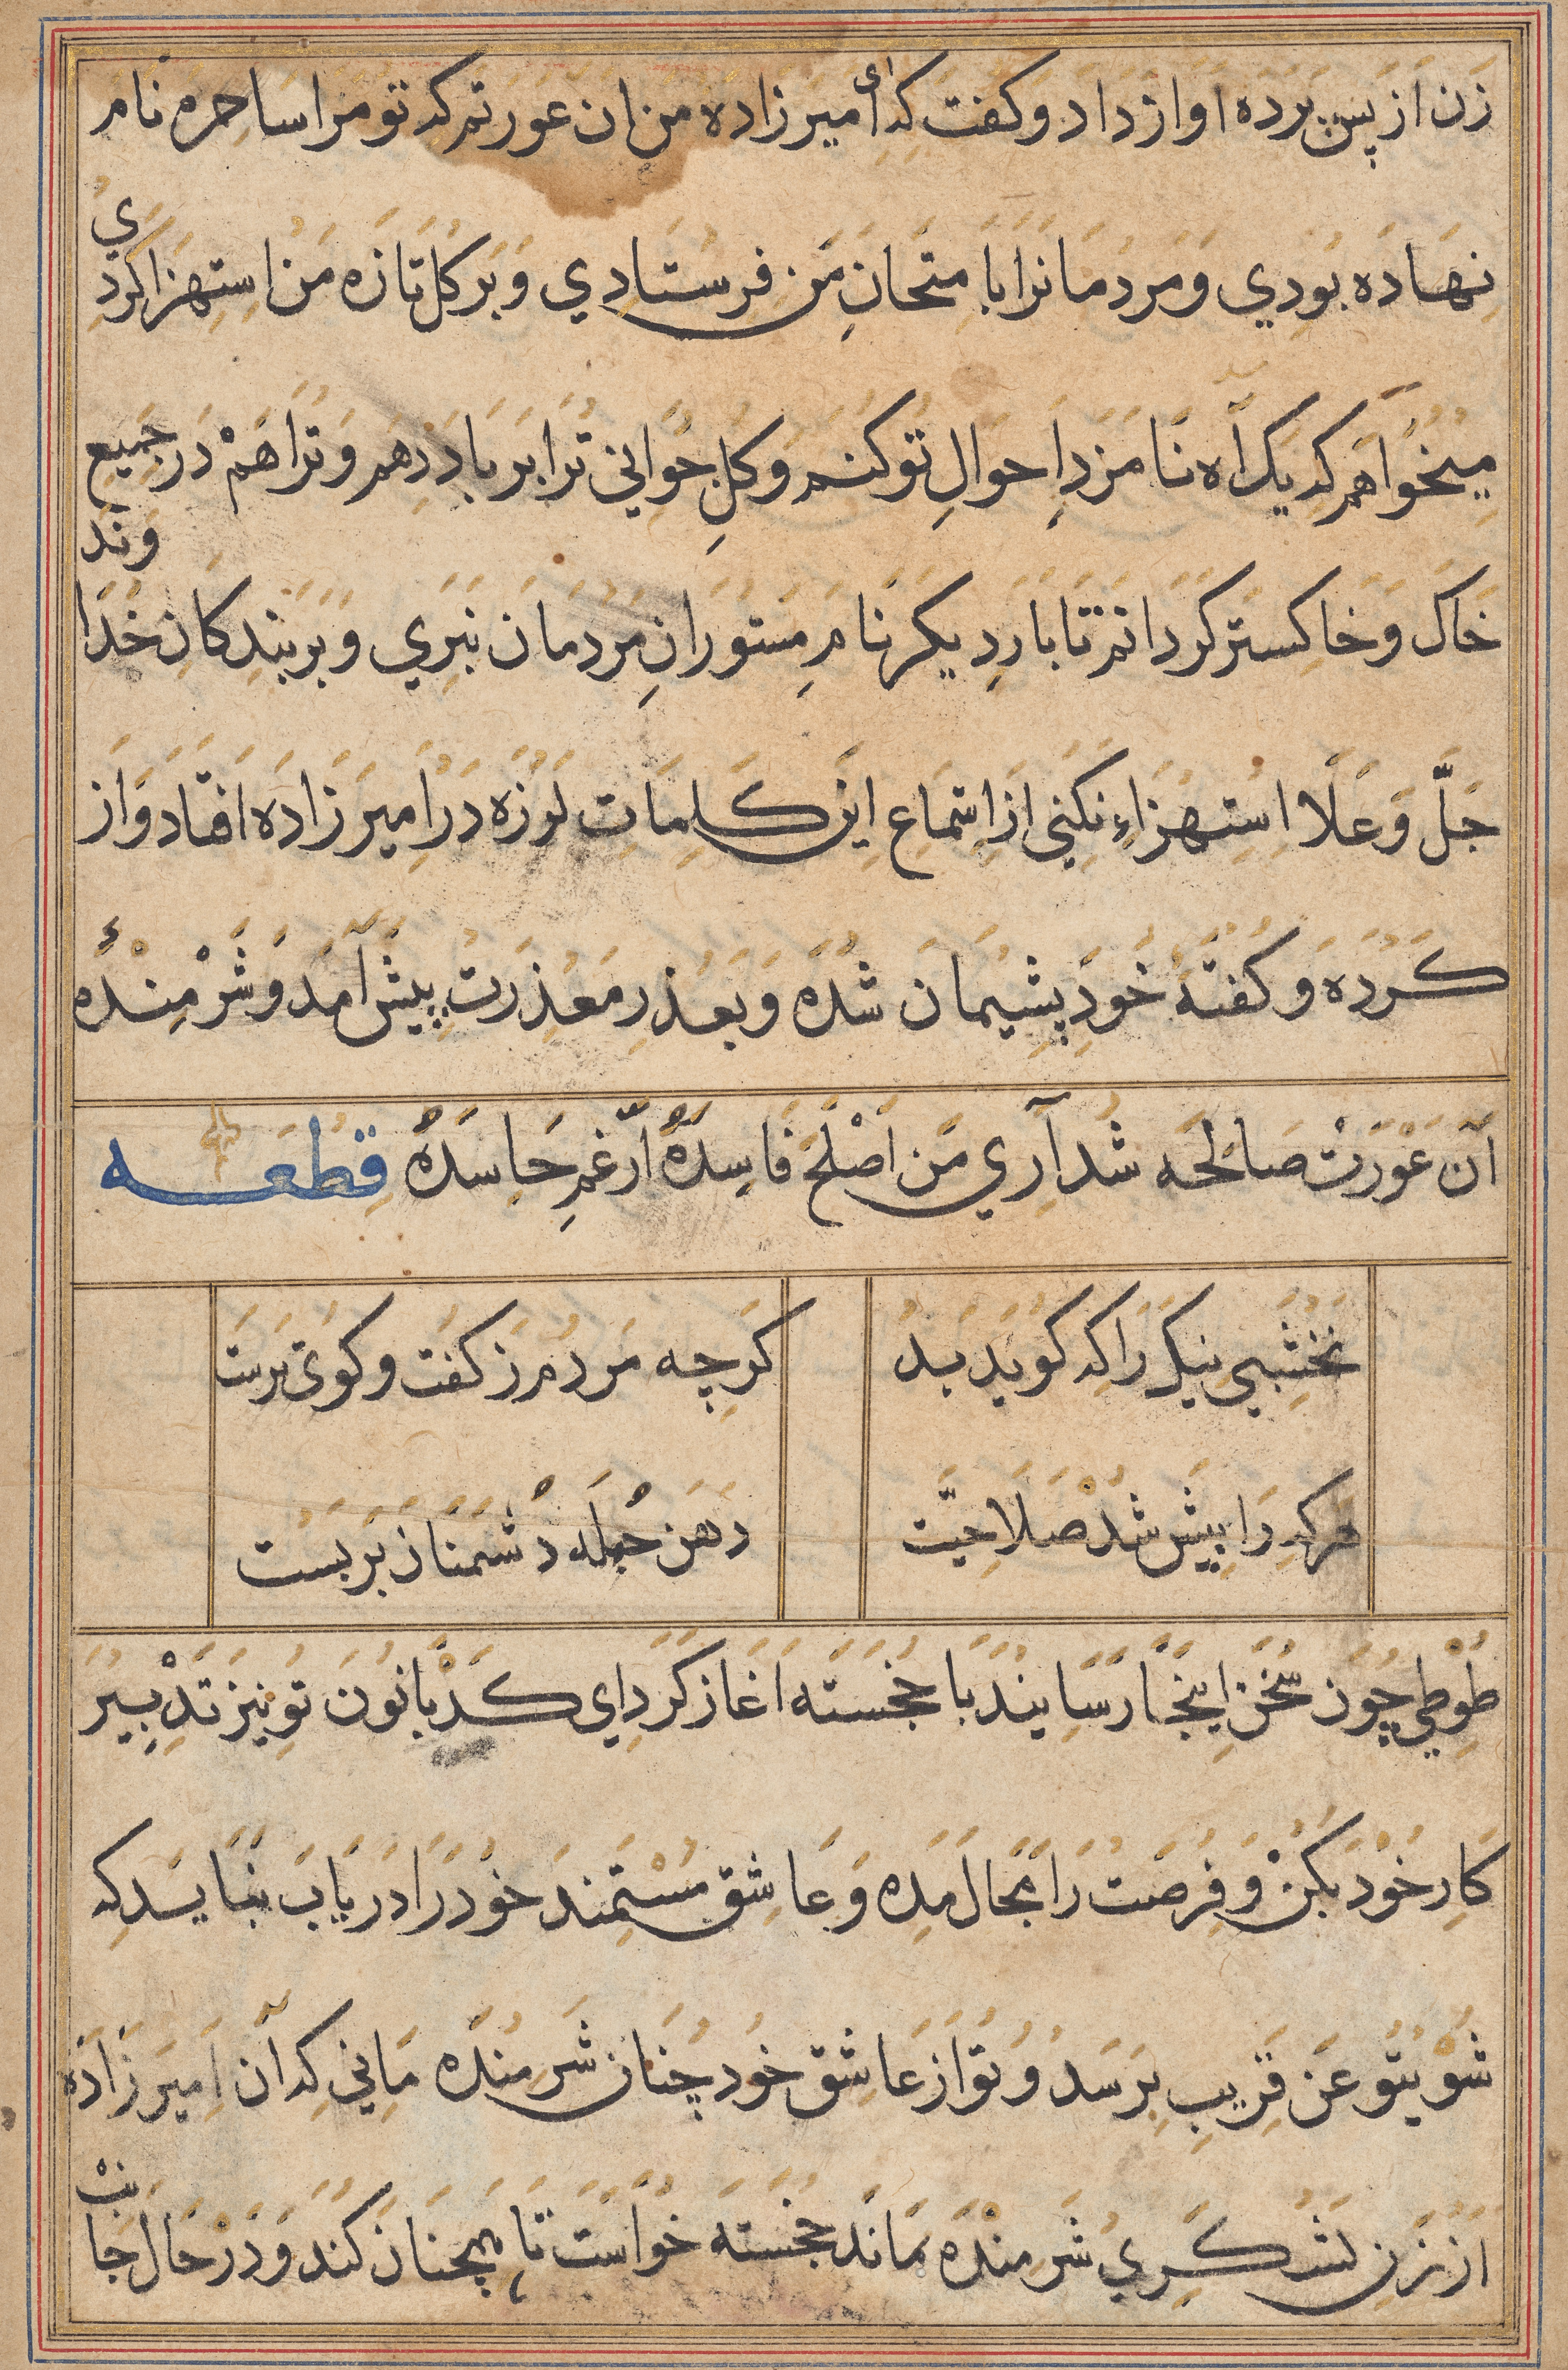 زن از پس پرده اواز داد و کفت که ای امیر زاده من ان عورتم که تو مرا ساحره نام
نهاده بودي و مردمانرا بامتحان من فرستادي و بر کل تازه من استهزا کردي
میخواهم که یک آه نامزد احوال تو کنم و کل جواني ترا بر باد دهم و ترا هم در جمیع
خاک و خاکستر کردانم تا بار دیکر نام مستوران مردمان نبري و بر بندکان خداوند
جلّ و علا استهزاء نکني از استماع این کلمات لرزه در امیر زاده افتاد و از
کرده و کفتهٔ خود پشیمان شده و بعذر معذرت پیش آمد و شرمندهٔ
آن عورت صالحه شد آري من اصلح فاسده ارّغم حاسده قطعه
نخشبي نیک را که کوید بد
کرچه مردم ز کفت و کوی برست
هرکه را بیش شد صلاحیّت
دهن جمله دشمنان بربست
طوطي چون سخن اینجا رسانید با خجسته آغاز کرد اي کدبانو تو نیز تدبیر
کار خود بکن و فرصت را مجال مده و عاشق مستمند خود را دریاب نباید که
شوي تو عن قریب برسد و تو از عاشق خود چنان شرمنده ماني که آن امیر زاده
از زن لشکري شرمنده ماند خجسته خواست تا همچنان کند و در حال جانب